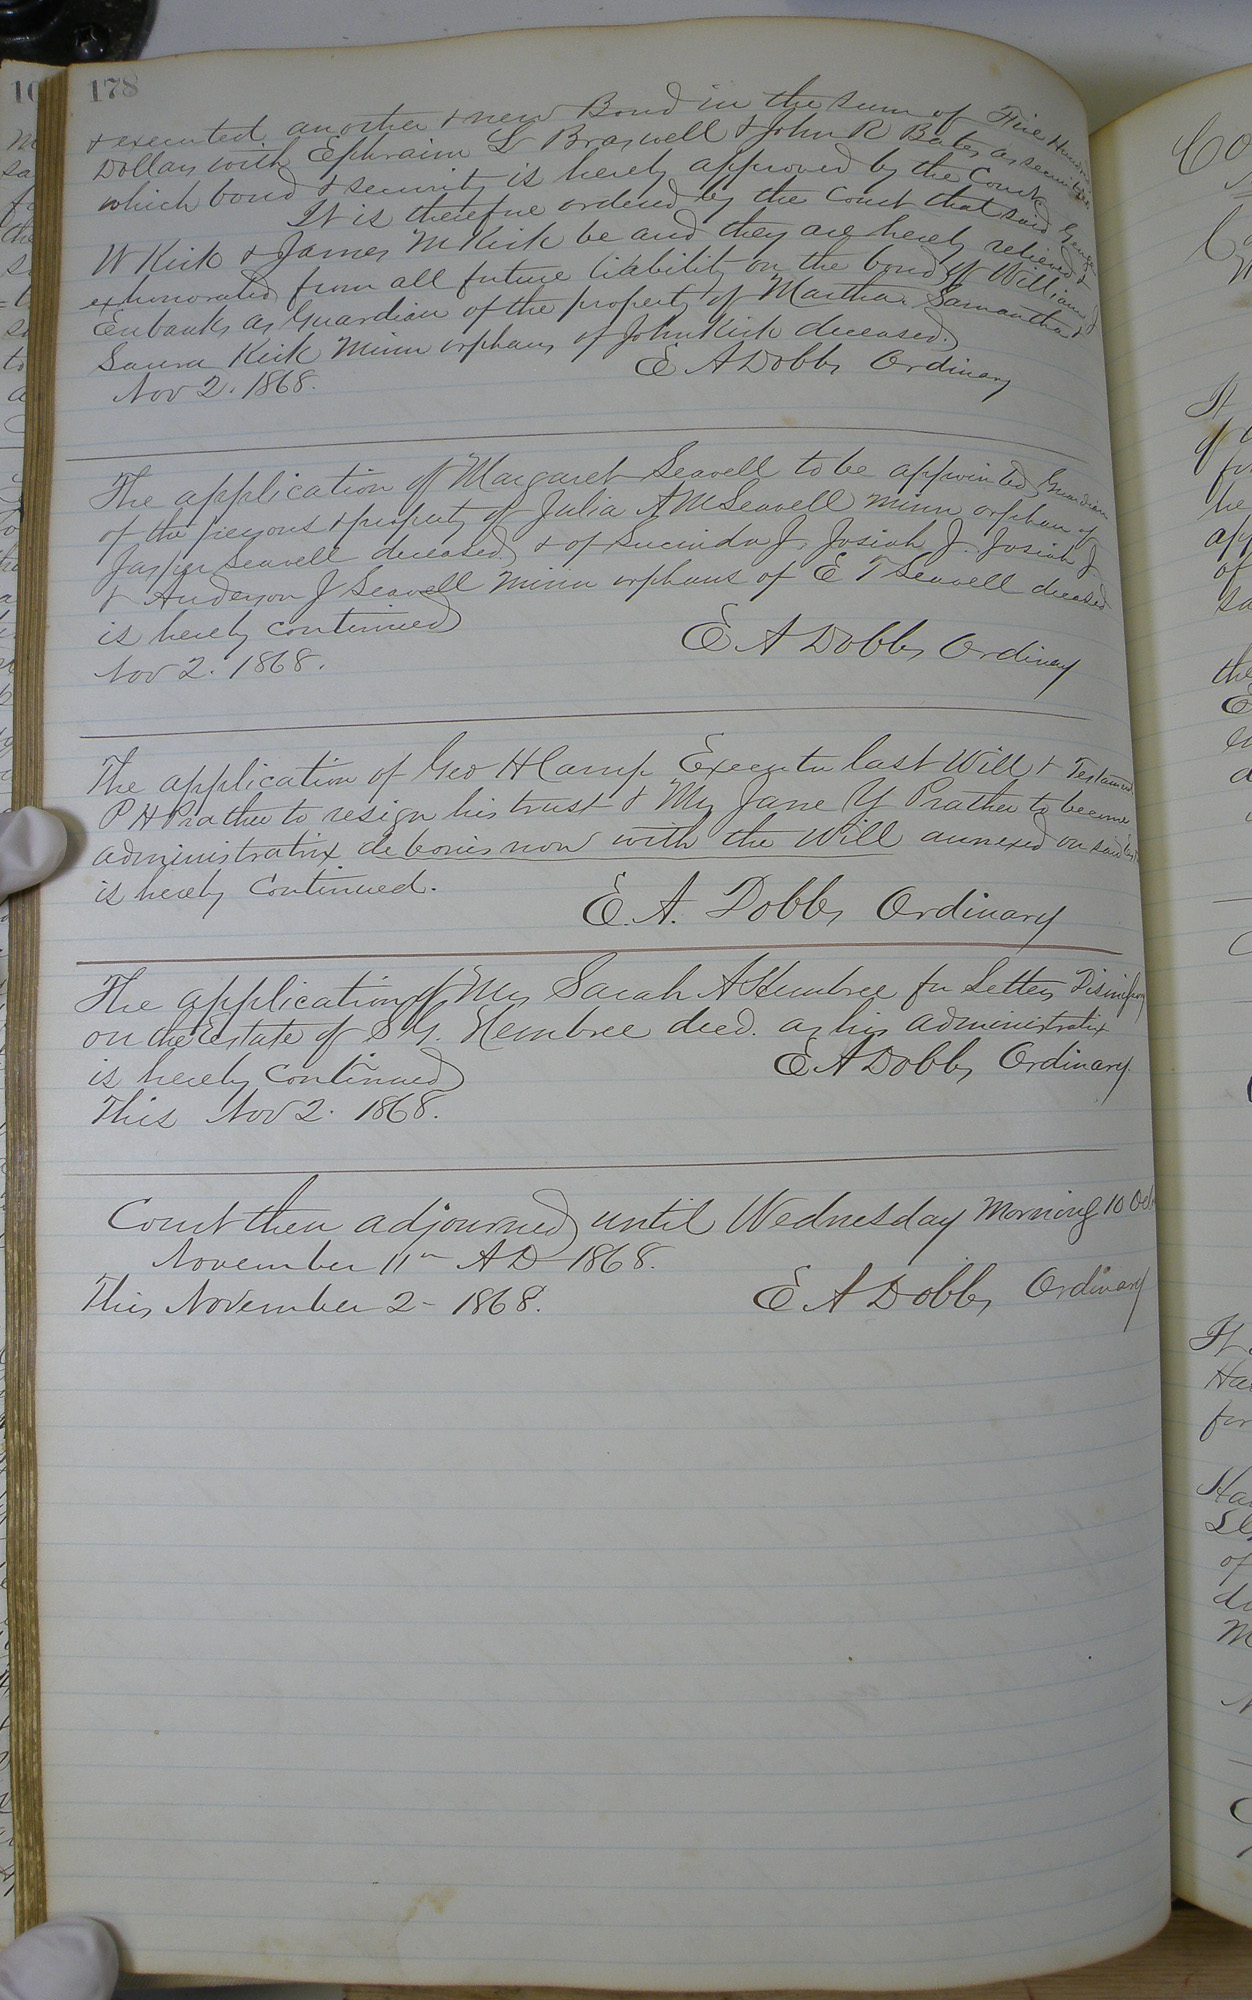 178
& executed another & new Bond in the sum of Five Hundred
Dollars with Ephraim L Braswell & John R Bates as securities
which bond & security is hereby approved by the Court
It is therefore ordered by the Court that said George
W Kirk & James M Kirk be and they are hereby relieved &
exhonorated from all future liability on the bond of William J
Eubanks as Guardian of the property of Martha Samantha &
Laura Kirk Minor orphans of John Kirk deceased.
E A Dobbs Ordinary
Nov 2. 1868.
The application of Margaret Seavell to be appointed Guardian
of the persons & property of Julia A M Seavell minor orphan of
Jasper Seavell deceased & of Lucinda J, Josiah J. Josiah J.
& Anderson J Seavell Minor orphans of E T Seavell deceased
is hereby continued
Nov 2. 1868.
E A Dobbs Ordinary
The application of Geo H Camp Executor last Will & Testament
P H Prather to resign his trust & Mrs Jane Y Prather to become
administratrix de bonis non with the Will annexed on said
is hereby Continued.
E. A. Dobbs Ordinary
The application of Mrs Sarah A Hembree for Letters
on the Estate of S G. Hembree decd. as his administratrix
is hereby Continued
E A Dobbs Ordinary
This Nov 2. 1868.
Court then adjourned until Wednesday Morning 10
November 11th A D 1868.
This November 2 - 1868.
E A Dobbs Ordinary